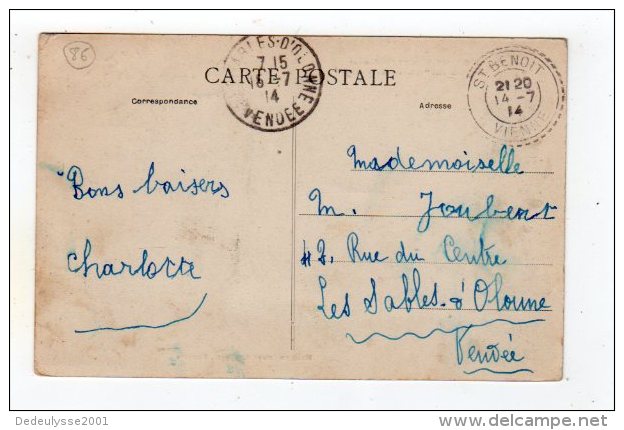 86
SABLES-D'OLONNE
7 15
16-7
14
VENDÉE
CARTE POSTALE
ST BENOIT
21 20
14 - 7
14
VIENNE
Correspondance
Adresse
Mademoiselle
M. Joubert
42, Rue du Centre
Les Sables-d'Olonne
Vendée
Bons baisers
Charlotte
Dedeulysse2001
delcampe.net